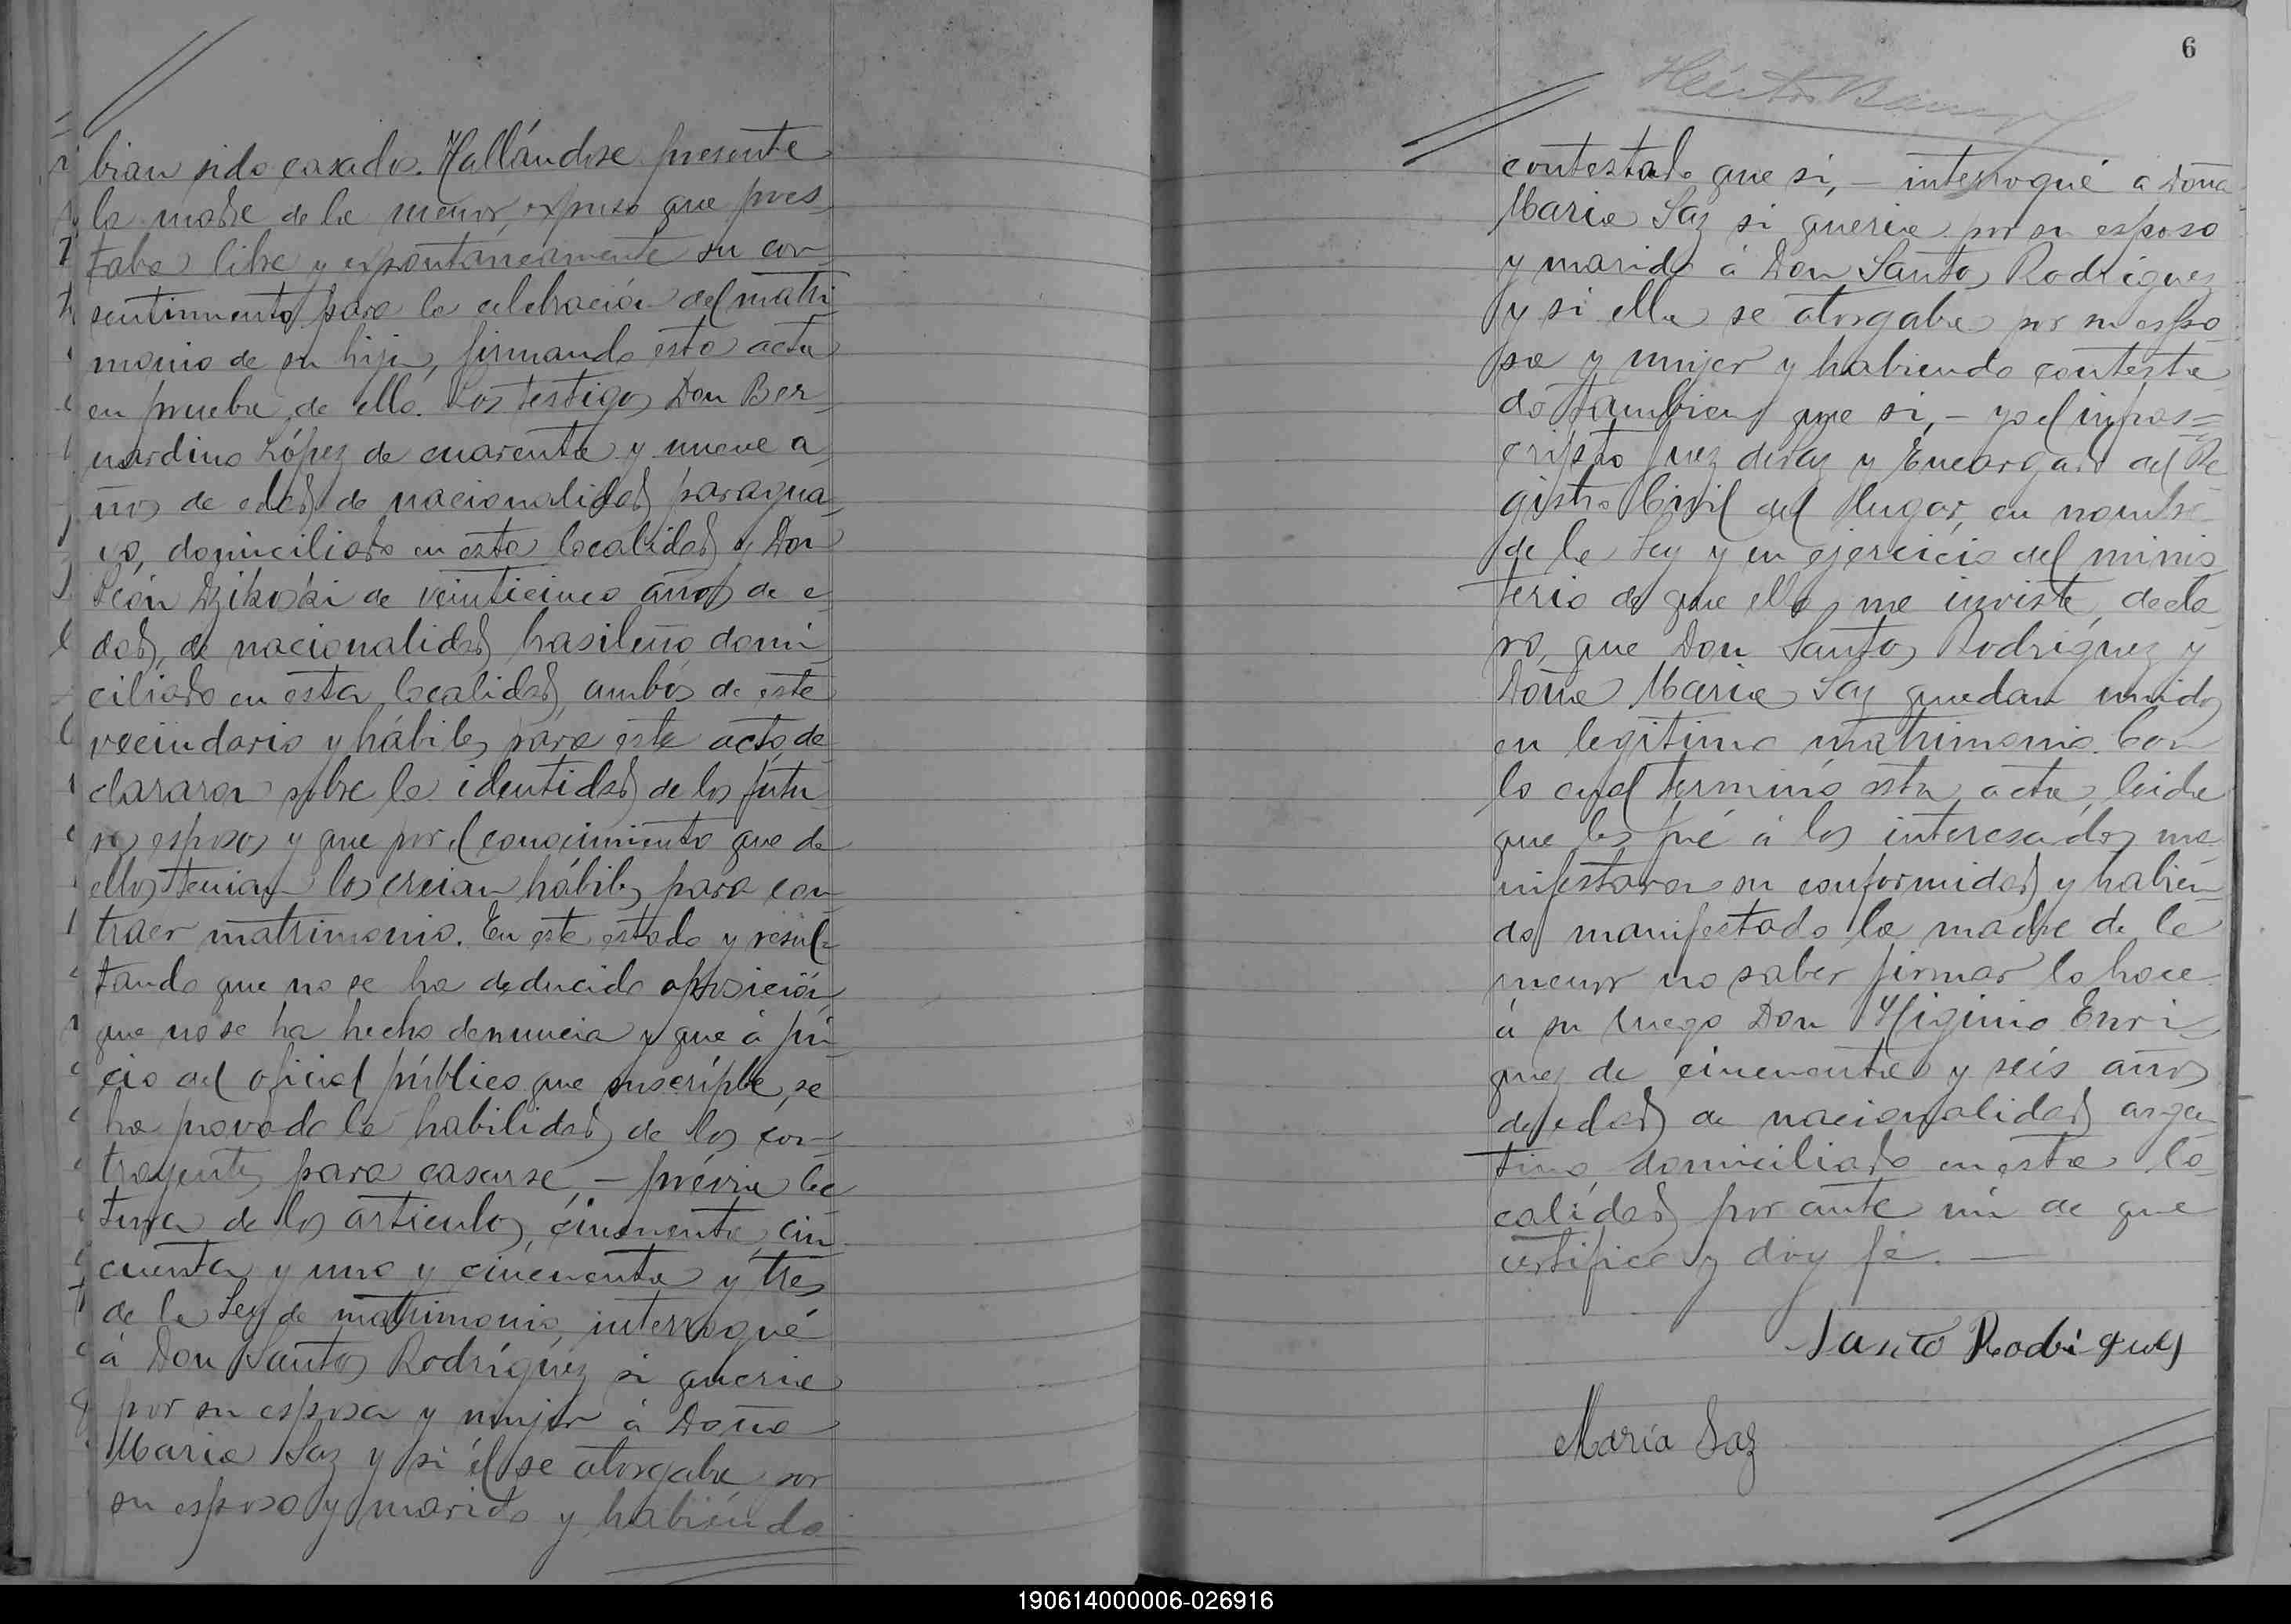 bian sido casados. Hallándose presente
la madre de la menor, expuso que pres-
taba libre y expontaneamente su con-
sentimiento para la celebración del matri-
monio de su hija, firmando esta acta
en prueba de ello. Los testigos Don Ber-
nardino López de cuarenta y nueve a-
ños de edad, de nacionalidad paragua-
yo, domiciliado en esta localidad y Don
León Dzikoski de veinticinco años de e-
dad, de nacionalidad brasileño, domi-
ciliado en esta localidad, ambos de este
vecindario y hábiles para este acto, de-
clararon sobre la identidad de los futu-
ros esposos y que por el conocimiento que de
ellos tenian los creian hábiles para con-
traer matrimonio. En este estado y resul-
tando que no se ha deducido oposición,
que no se ha hecho denuncia y que á jui-
cio del oficial público que suscripbe, se
ha provado la habilidad de los con-
trayentes para casarse, - prévia lec-
tura de los articulos, cincuenta, cin-
cuenta y uno y cincuenta y tres
de la Ley de matrimonio, interrogué
á Don Santos Rodríguez si queria
por su esposa y mujer á Doña
Maria Saz y si él se otorgaba por
su esposo y marido y habiéndo
6
Héctor
contestado que si, - interrogué a Doña
Maria Saz si queria por su esposo
y marido á Don Santos Rodríguez
y si ella se otorgaba por su espo-
sa y mujer y habiendo contesta-
do tambien que si, - yo el infras=
cripto Juez de Paz y Encargado del Re-
gistro Civil del lugar, en nombre
de la Ley y en ejercicio del minis-
terio de que ella me inviste, decla-
ro, que Don Santos Rodriguez y
Doña Maria Saz quedan unidos
en legitimo matrimonio. Con
lo cual terminó esta acta, leida
que les fué á los interesados, ma-
nifestaron su conformidad y habien-
do manifestado la madre de la
menor no saber firmar lo hace
á su ruego Don Higinio Enri-
quez de cincuenta y seis años
de edad, de nacionalidad argen-
tino, domiciliado en esta lo-
calidad, por ante mi de que
certifico y doy fé. —
Santo Rodrigues
María Saz
190614000006-026916